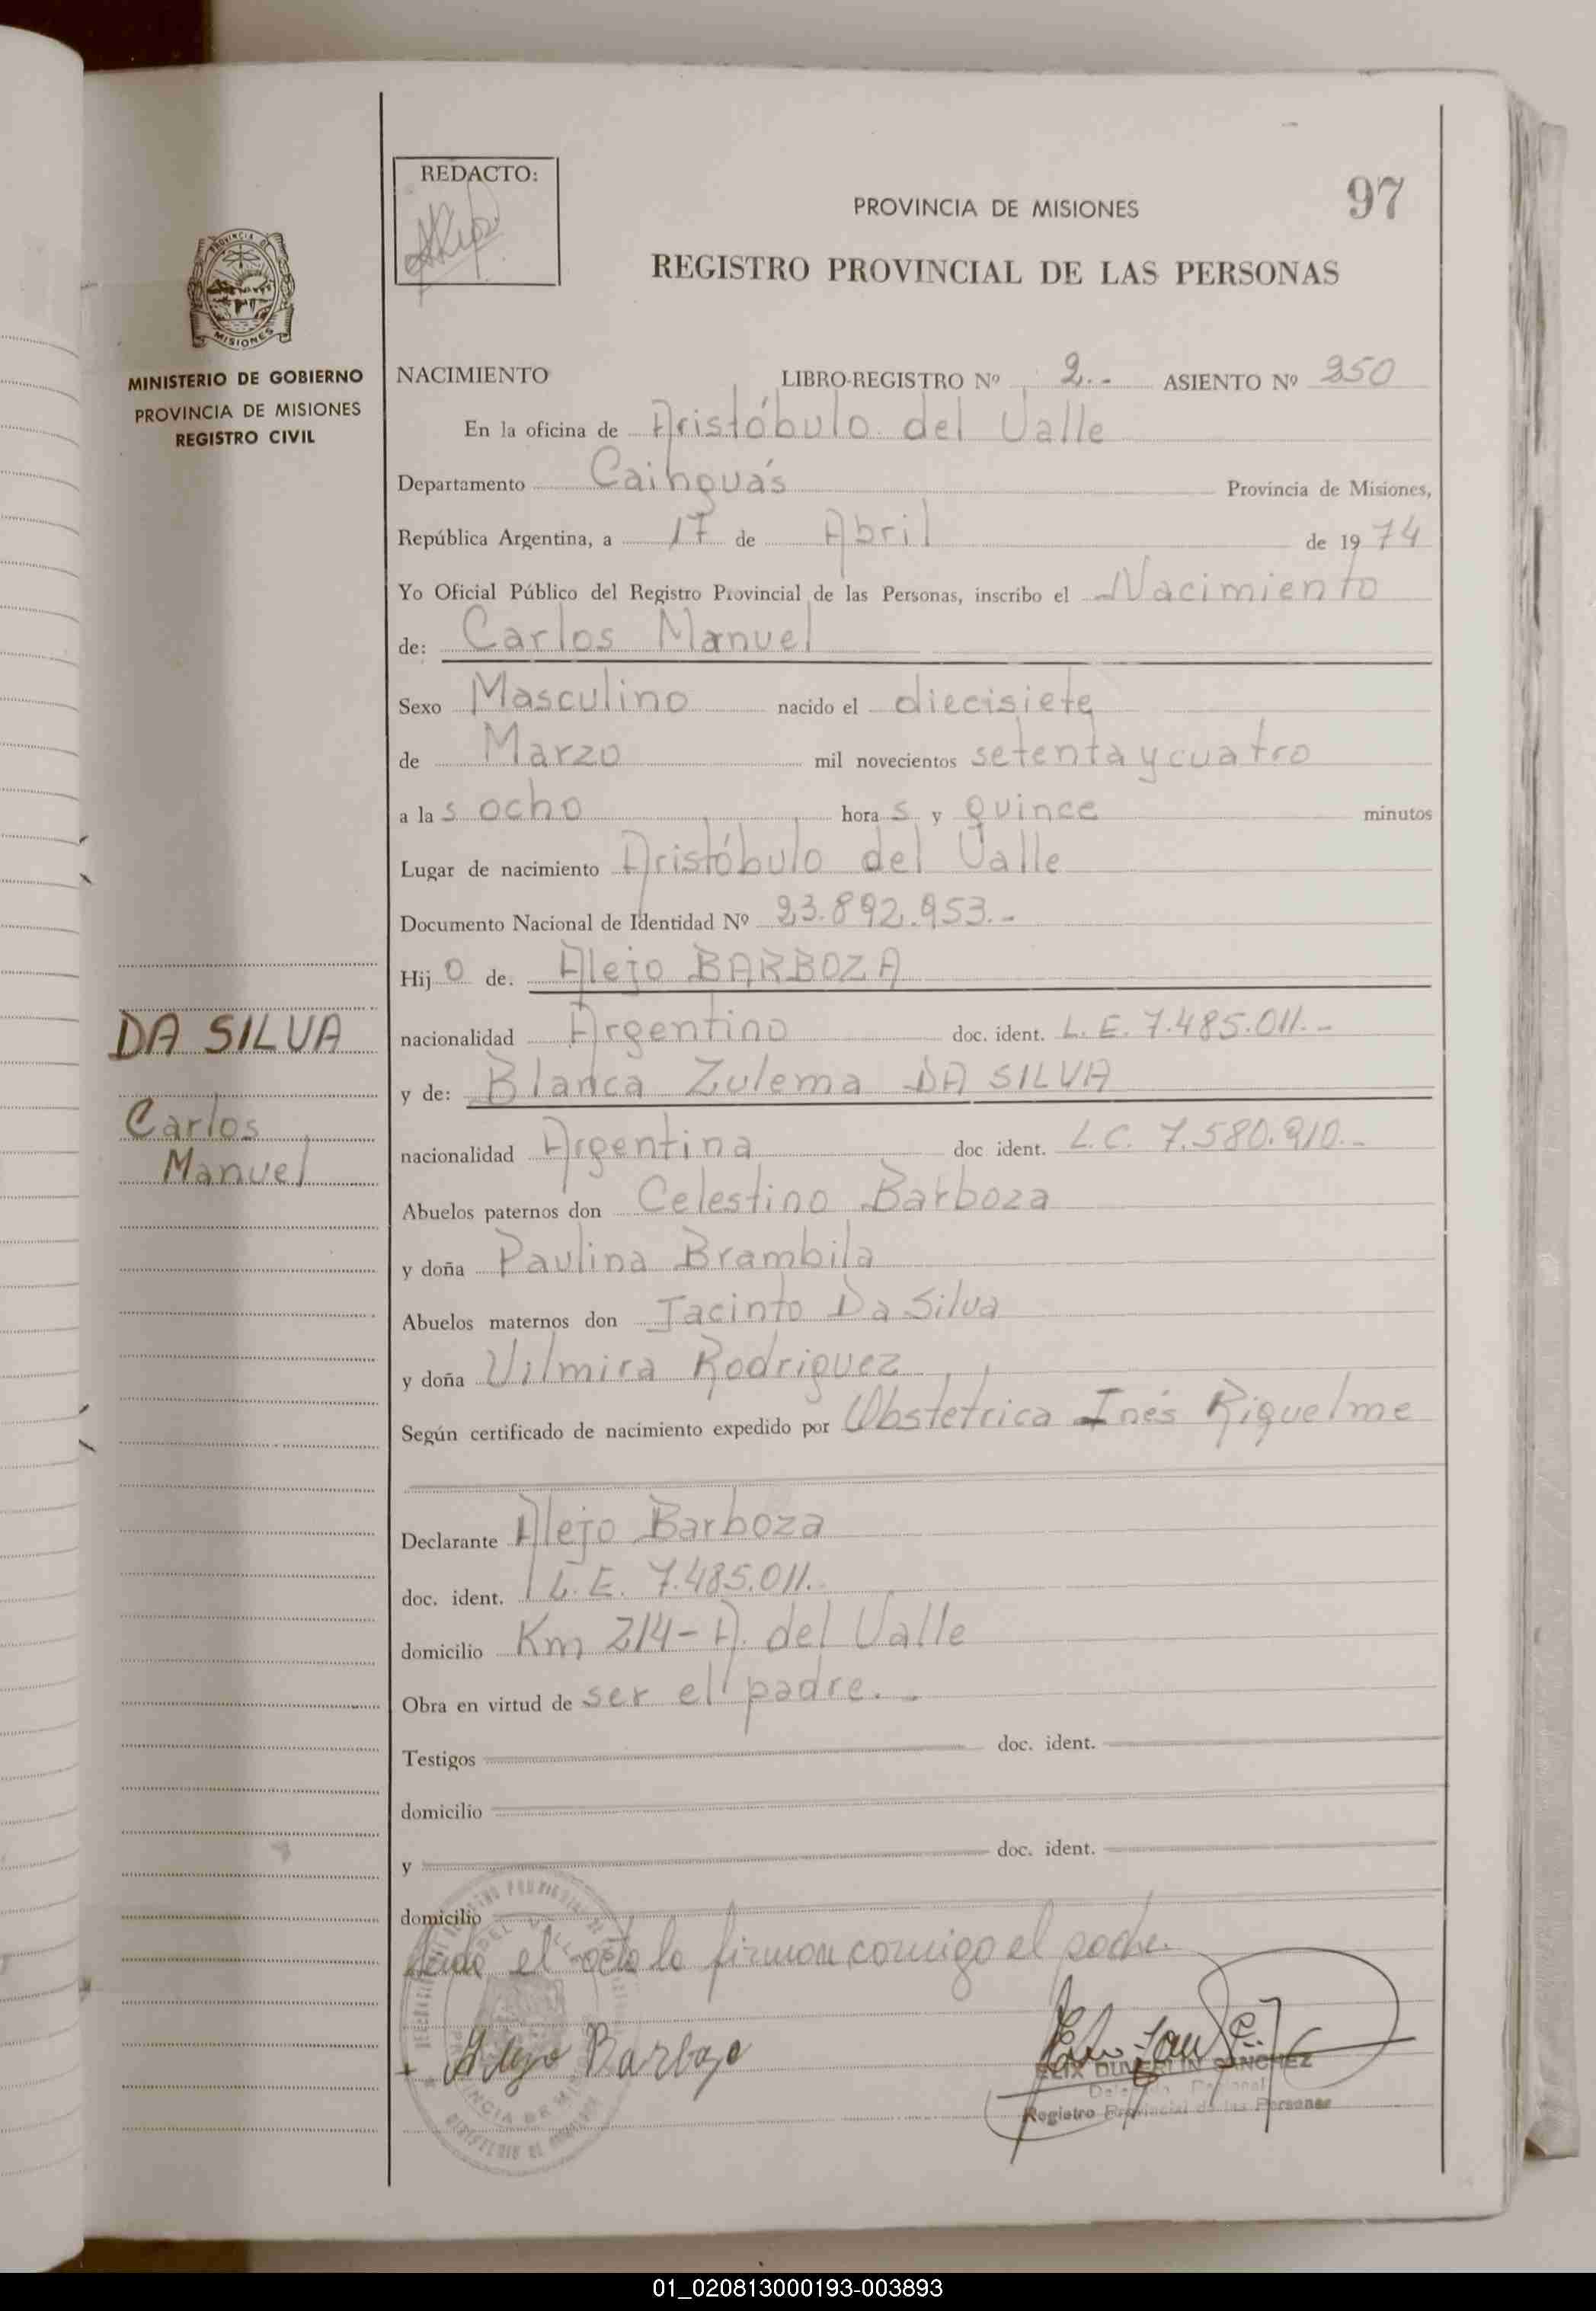 REDACTO:
97
PROVINCIA DE MISIONES
REGISTRO PROVINCIAL DE LAS PERSONAS
PROVINCIA DE
MISIONES
MINISTERIO DE GOBIERNO
PROVINCIA DE MISIONES
REGISTRO CIVIL
NACIMIENTO LIBRO-REGISTRO Nº 2.- ASIENTO Nº 250
En la oficina de Aristóbulo del Valle
Departamento Cainguás Provincia de Misiones,
República Argentina, a 17 de Abril de 1974
Yo Oficial Público del Registro Provincial de las Personas, inscribo el Nacimiento
de: Carlos Manuel
Sexo Masculino nacido el diecisiete
de Marzo mil novecientos setenta y cuatro
a las ocho horas y quince minutos
Lugar de nacimiento Aristóbulo del Valle
Documento Nacional de Identidad Nº 23.892.953.-
Hijo de: Alejo BARBOZA
nacionalidad Argentino doc. ident. L.E. 7.485.011.-
y de: Blanca Zulema DA SILVA
nacionalidad Argentina doc ident. L.C. 7.580.910.-
DA SILVA
Carlos
Manuel
Abuelos paternos don Celestino Barboza
y doña Paulina Brambila
Abuelos maternos don Jacinto Da Silva
y doña Vilmira Rodriguez
Según certificado de nacimiento expedido por Obstetrica Inés Riquelme
Declarante Alejo Barboza
doc. ident. L.E. 7.485.011.
domicilio Km 214- A. del Valle
Obra en virtud de ser el padre.-
Testigos doc. ident.
domicilio
y doc. ident.
domicilio
el acto lo firman conmigo el padre.
Alejo Barboza
FELIX DUVERLIN SANCHEZ
Registro Provincial de las Personas
01_020813000193-003893